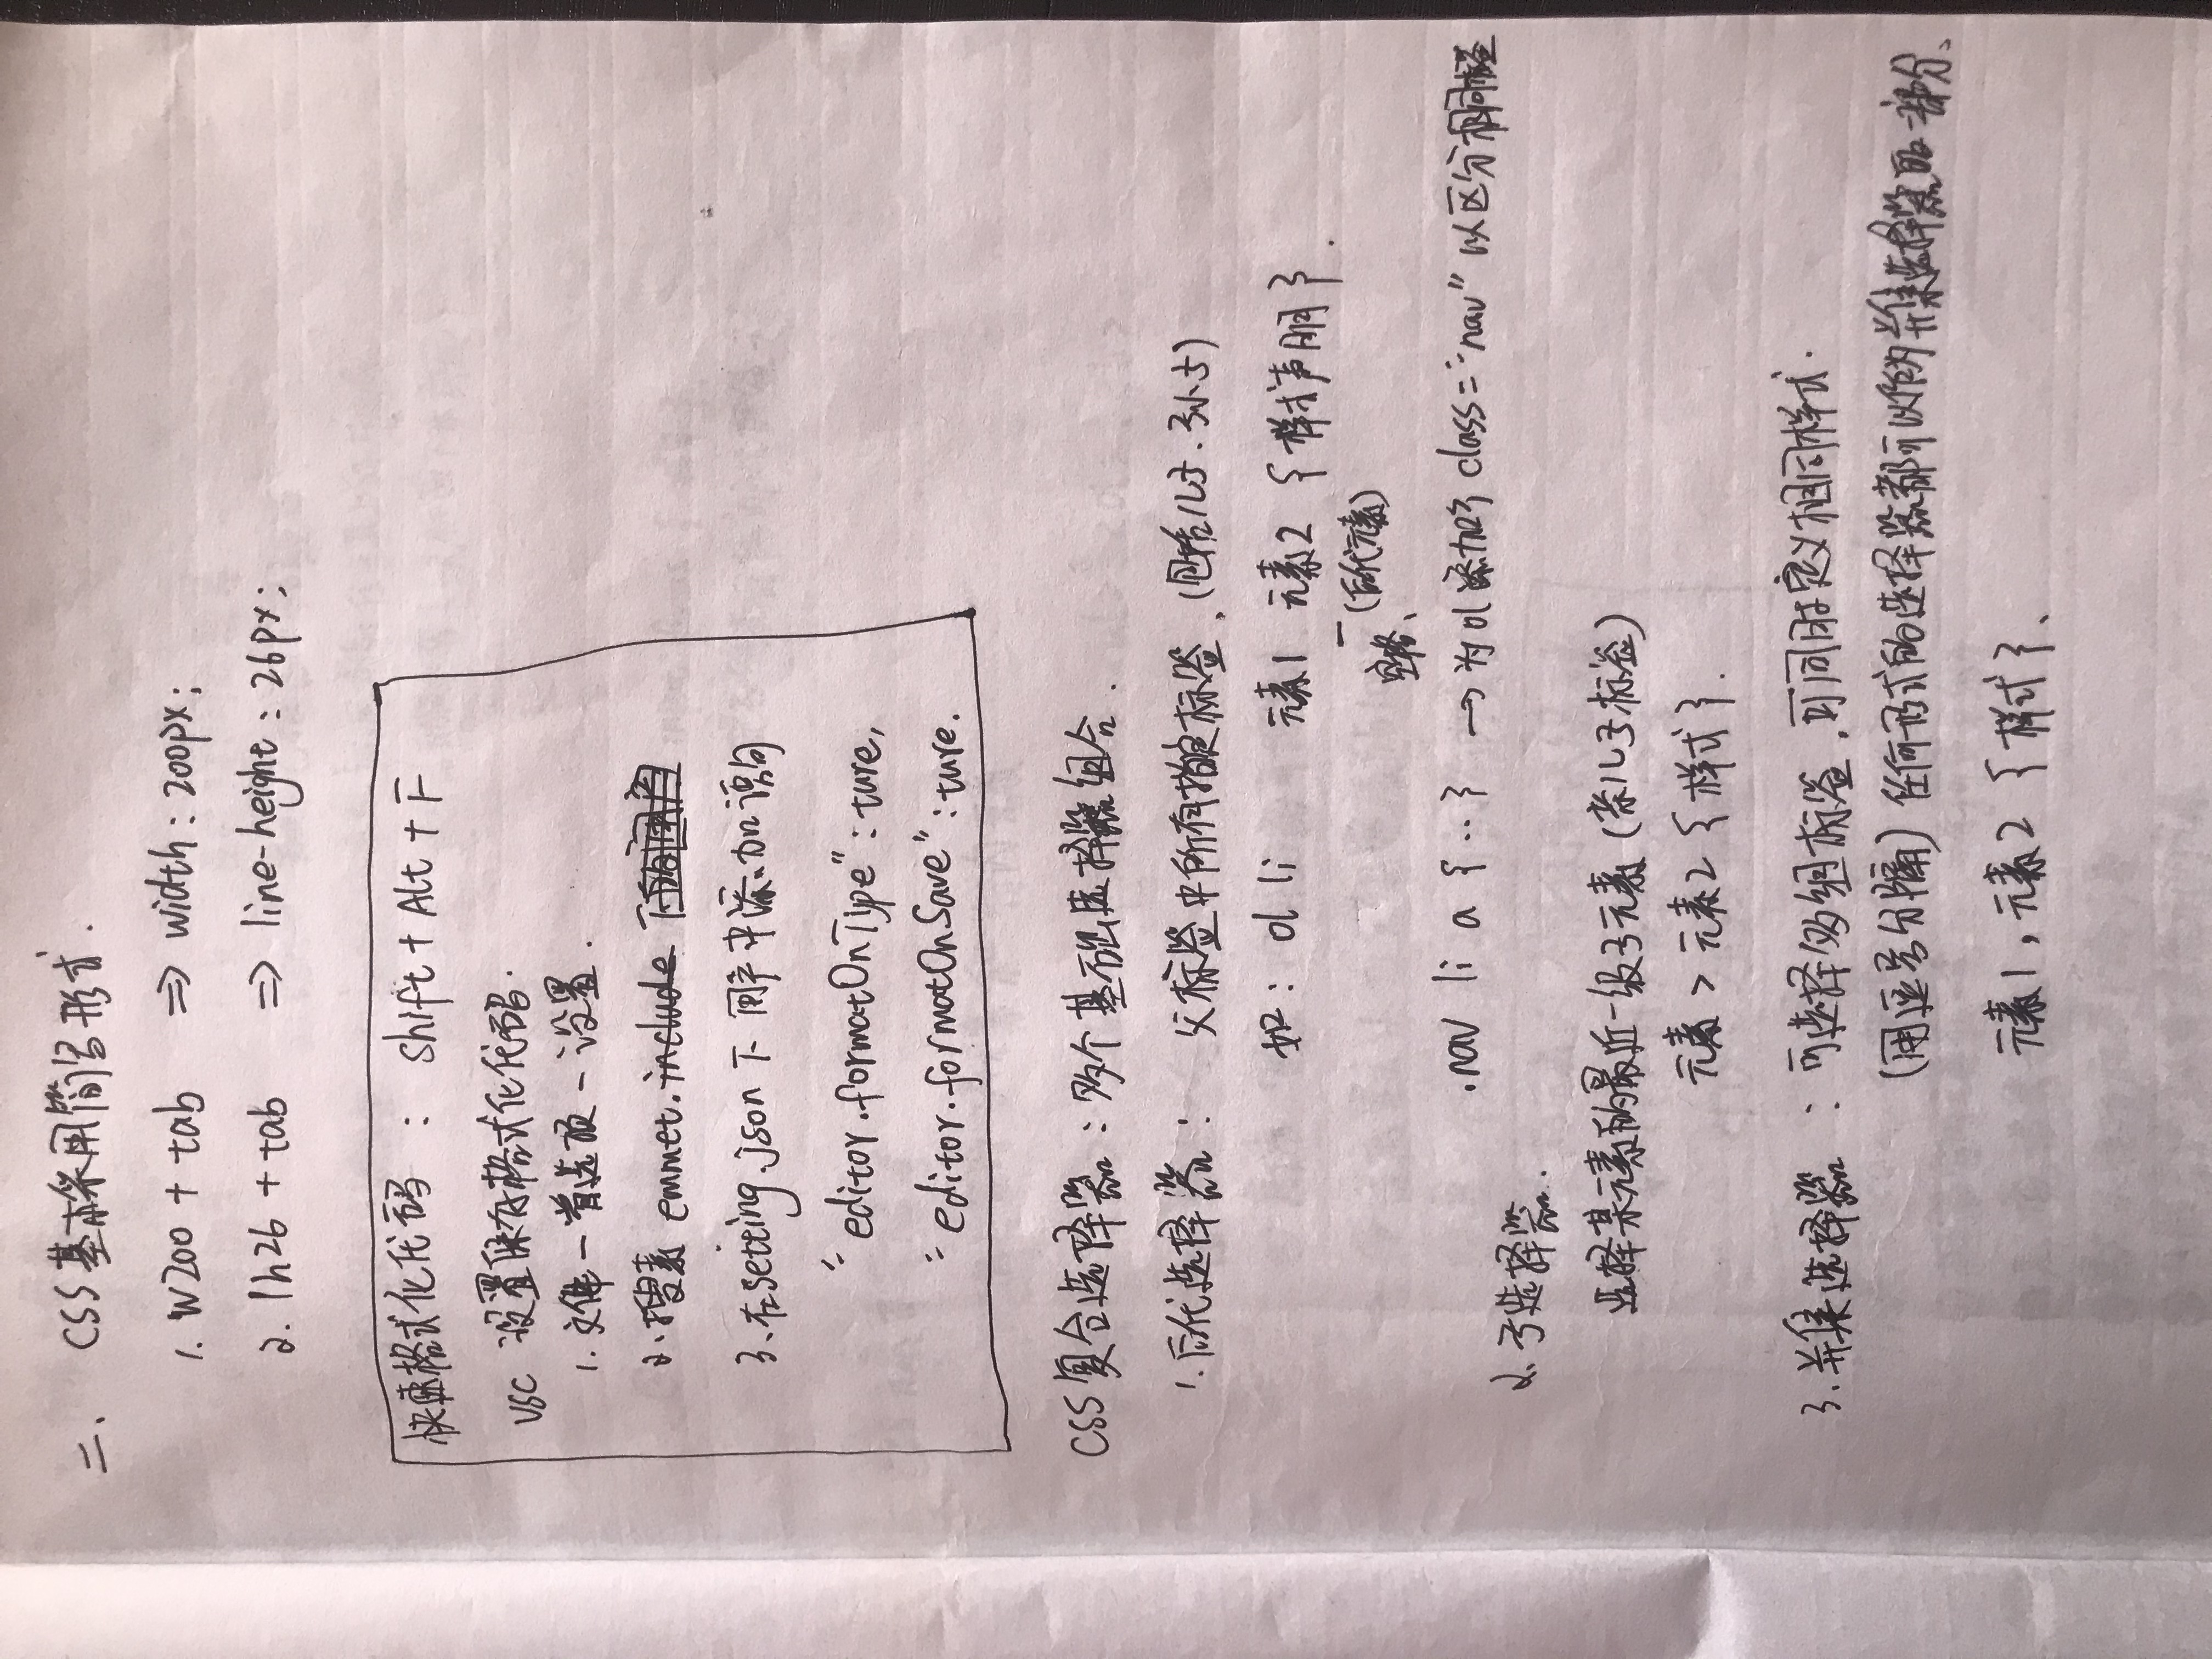 二、 CSS基本采用简写形式.
1. w200 + tab ⇒ width : 200px;
2. lh26 + tab ⇒ line-height : 26px;
快速格式化代码 : shift + Alt + F
vsc 设置保存格式化代码.
1. 文件 — 首选项 — 设置.
2. 搜素 emmet.include
3. 在setting.json 下 用户中添加语句
"editor.formatOnType" : ture,
"editor.formatOnSave" : ture.
CSS复合选择器 : 多个基础选择器组合.
1. 后代选择器 : 父标签中所有指定标签.(包括儿子.孙子)
如 : ol li 元素1 元素2 { 样式声明 }.
空格、 (后代元素)
.nav li a { .. } → 为ol添加了 class = "nav" 以区分相同标签
2. 子选择器.
选择某元素的最近一级子元素 (亲儿子标签)
元素 > 元素2 { 样式 }.
3. 并集选择器 : 可选择多组标签.可同时定义相同样式.
(用逗号分隔) 任何形式的选择器都可以作为并集选择器的一部分、
元素1 , 元素2 { 样式 }、